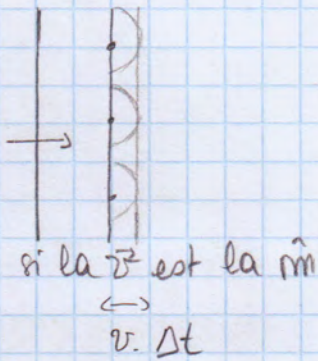 si la v⃗ est la m̂
v. Δt